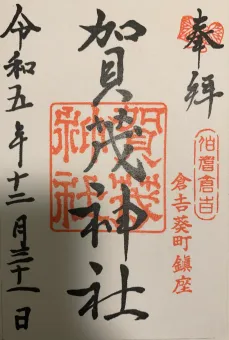 奉拝
伯耆倉吉
倉吉葵町鎮座
賀茂神社
賀茂神社
令和五年十二月三十一日